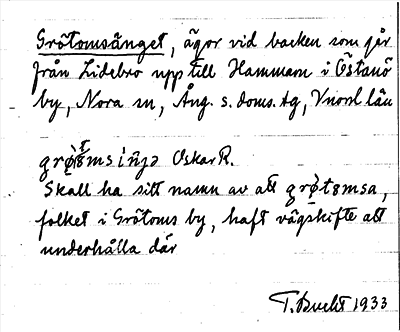 Grötomsänget, ägor vid backen som går
från Lidebro upp till Hamnom i Östanö
by, Nora sn, Ång. s. doms. tg, Vnorrl län
Oskar R.
Skall ha sitt namn av att grø̀tømsa,
folket i Grötoms by, haft vägskifte att
underhålla där
T. Bucht 1933